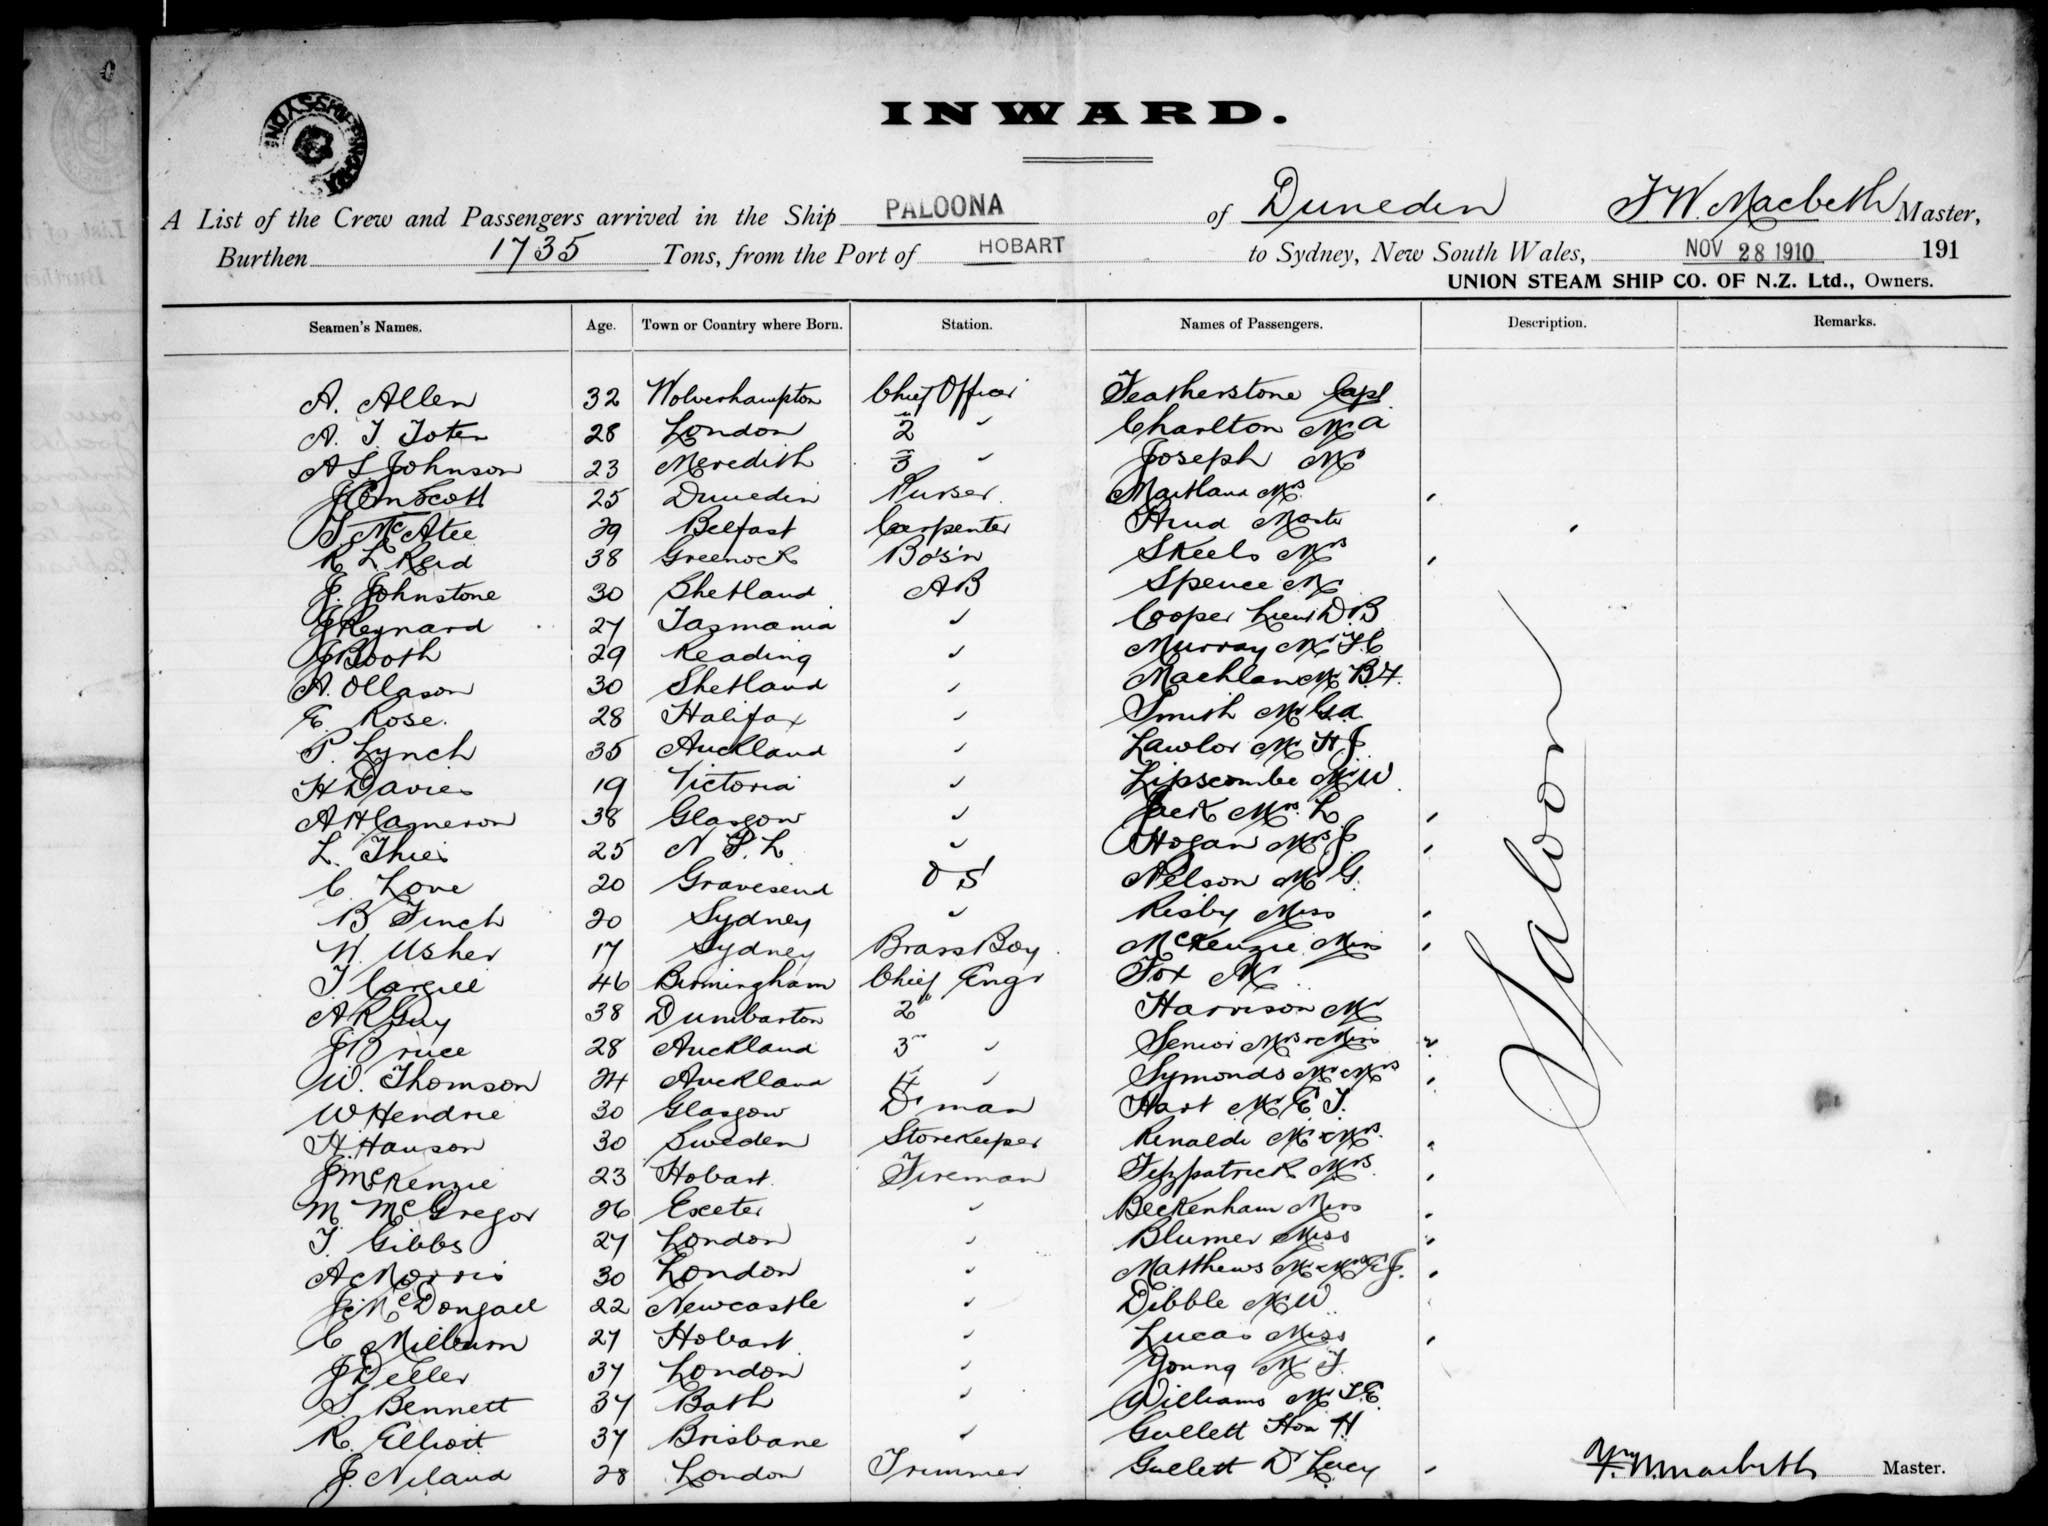 INWARD.
A List of the Crew and Passengers arrived in the Ship PALOONA of Dunedin T W. Macbeth Master,
Burthen 1735 Tons, from the Port of HOBART to Sydney, New South Wales, NOV 28 1910 191
UNION STEAM SHIP CO. OF N.Z. Ltd., Owners.
Seamen's Names. Age. Town or Country where Born. Station. Names of Passengers. Description. Remarks.
A. Allen 32 Wolverhampton Chief Officer Featherstone Capt
A. J. Toten 28 London 2" " Charlton Mr A
A L Johnson 23 Meredith 3 " Joseph Mr
Scott 25 Dunedin Purser Maitland Mrs
T McAtee 29 Belfast Carpenter Hud Mastr
R L Reid 38 Greenock Bo's'n Skeels Mrs
J. Johnstone 30 Shetland AB Spence Mr
J Reynard 27 Tasmania " Cooper Lieut D.B
J Booth 29 Reading " Murray Mr T.C
A. Ollason 30 Shetland " Mr
E. Rose. 28 Halifax " Smith Mr
P. Lynch 35 Auckland " Lawlor Mr H J
H Davies 19 Victoria " Lipscombe Mr W
A H 38 Glasgow " Jack Mrs L
L. Thies 25 " Hogan Mrs J
C Love 20 Gravesend O S Nelson Mr G.
B Finch 20 Sydney " Risby Miss
W. Usher 17 Sydney Brass Boy McKenzie Miss
T Cargill 46 Birmingham Chief Engr Fox Mr
A R Guy 38 Dumbarton 2" Harrison Mr
J Bruce 28 Auckland 3" " Senior Mrs & Miss
W. Thomson 24 Auckland 4 " Symonds Mr Mrs
W Hendrie 30 Glasgow D'man Hart Mr E T.
H. Hanson 30 Sweden Storekeeper Renaldi Mr & Mrs.
J McKenzie 23 Hobart. Fireman Fitzpatrick Mrs
M McGregor 26 Exeter " Beckenham Miss
T. Gibbs 27 London " Blumer Miss
A Morris 30 London " Matthews Mr & Mrs E J.
J. McDougall 22 Newcastle " Dibble Mr W
C Milburn 27 Hobart " Lucas Miss
J Deller 37 London " Young Mr T.
S Bennett 37 Bath " Williams Mr T.E.
R. Elliott 37 Brisbane " Gullett Hon H
J. Niland 28 London Trimmer Gullett Dr Lucy
Saloon
T. W. Macbeth Master.